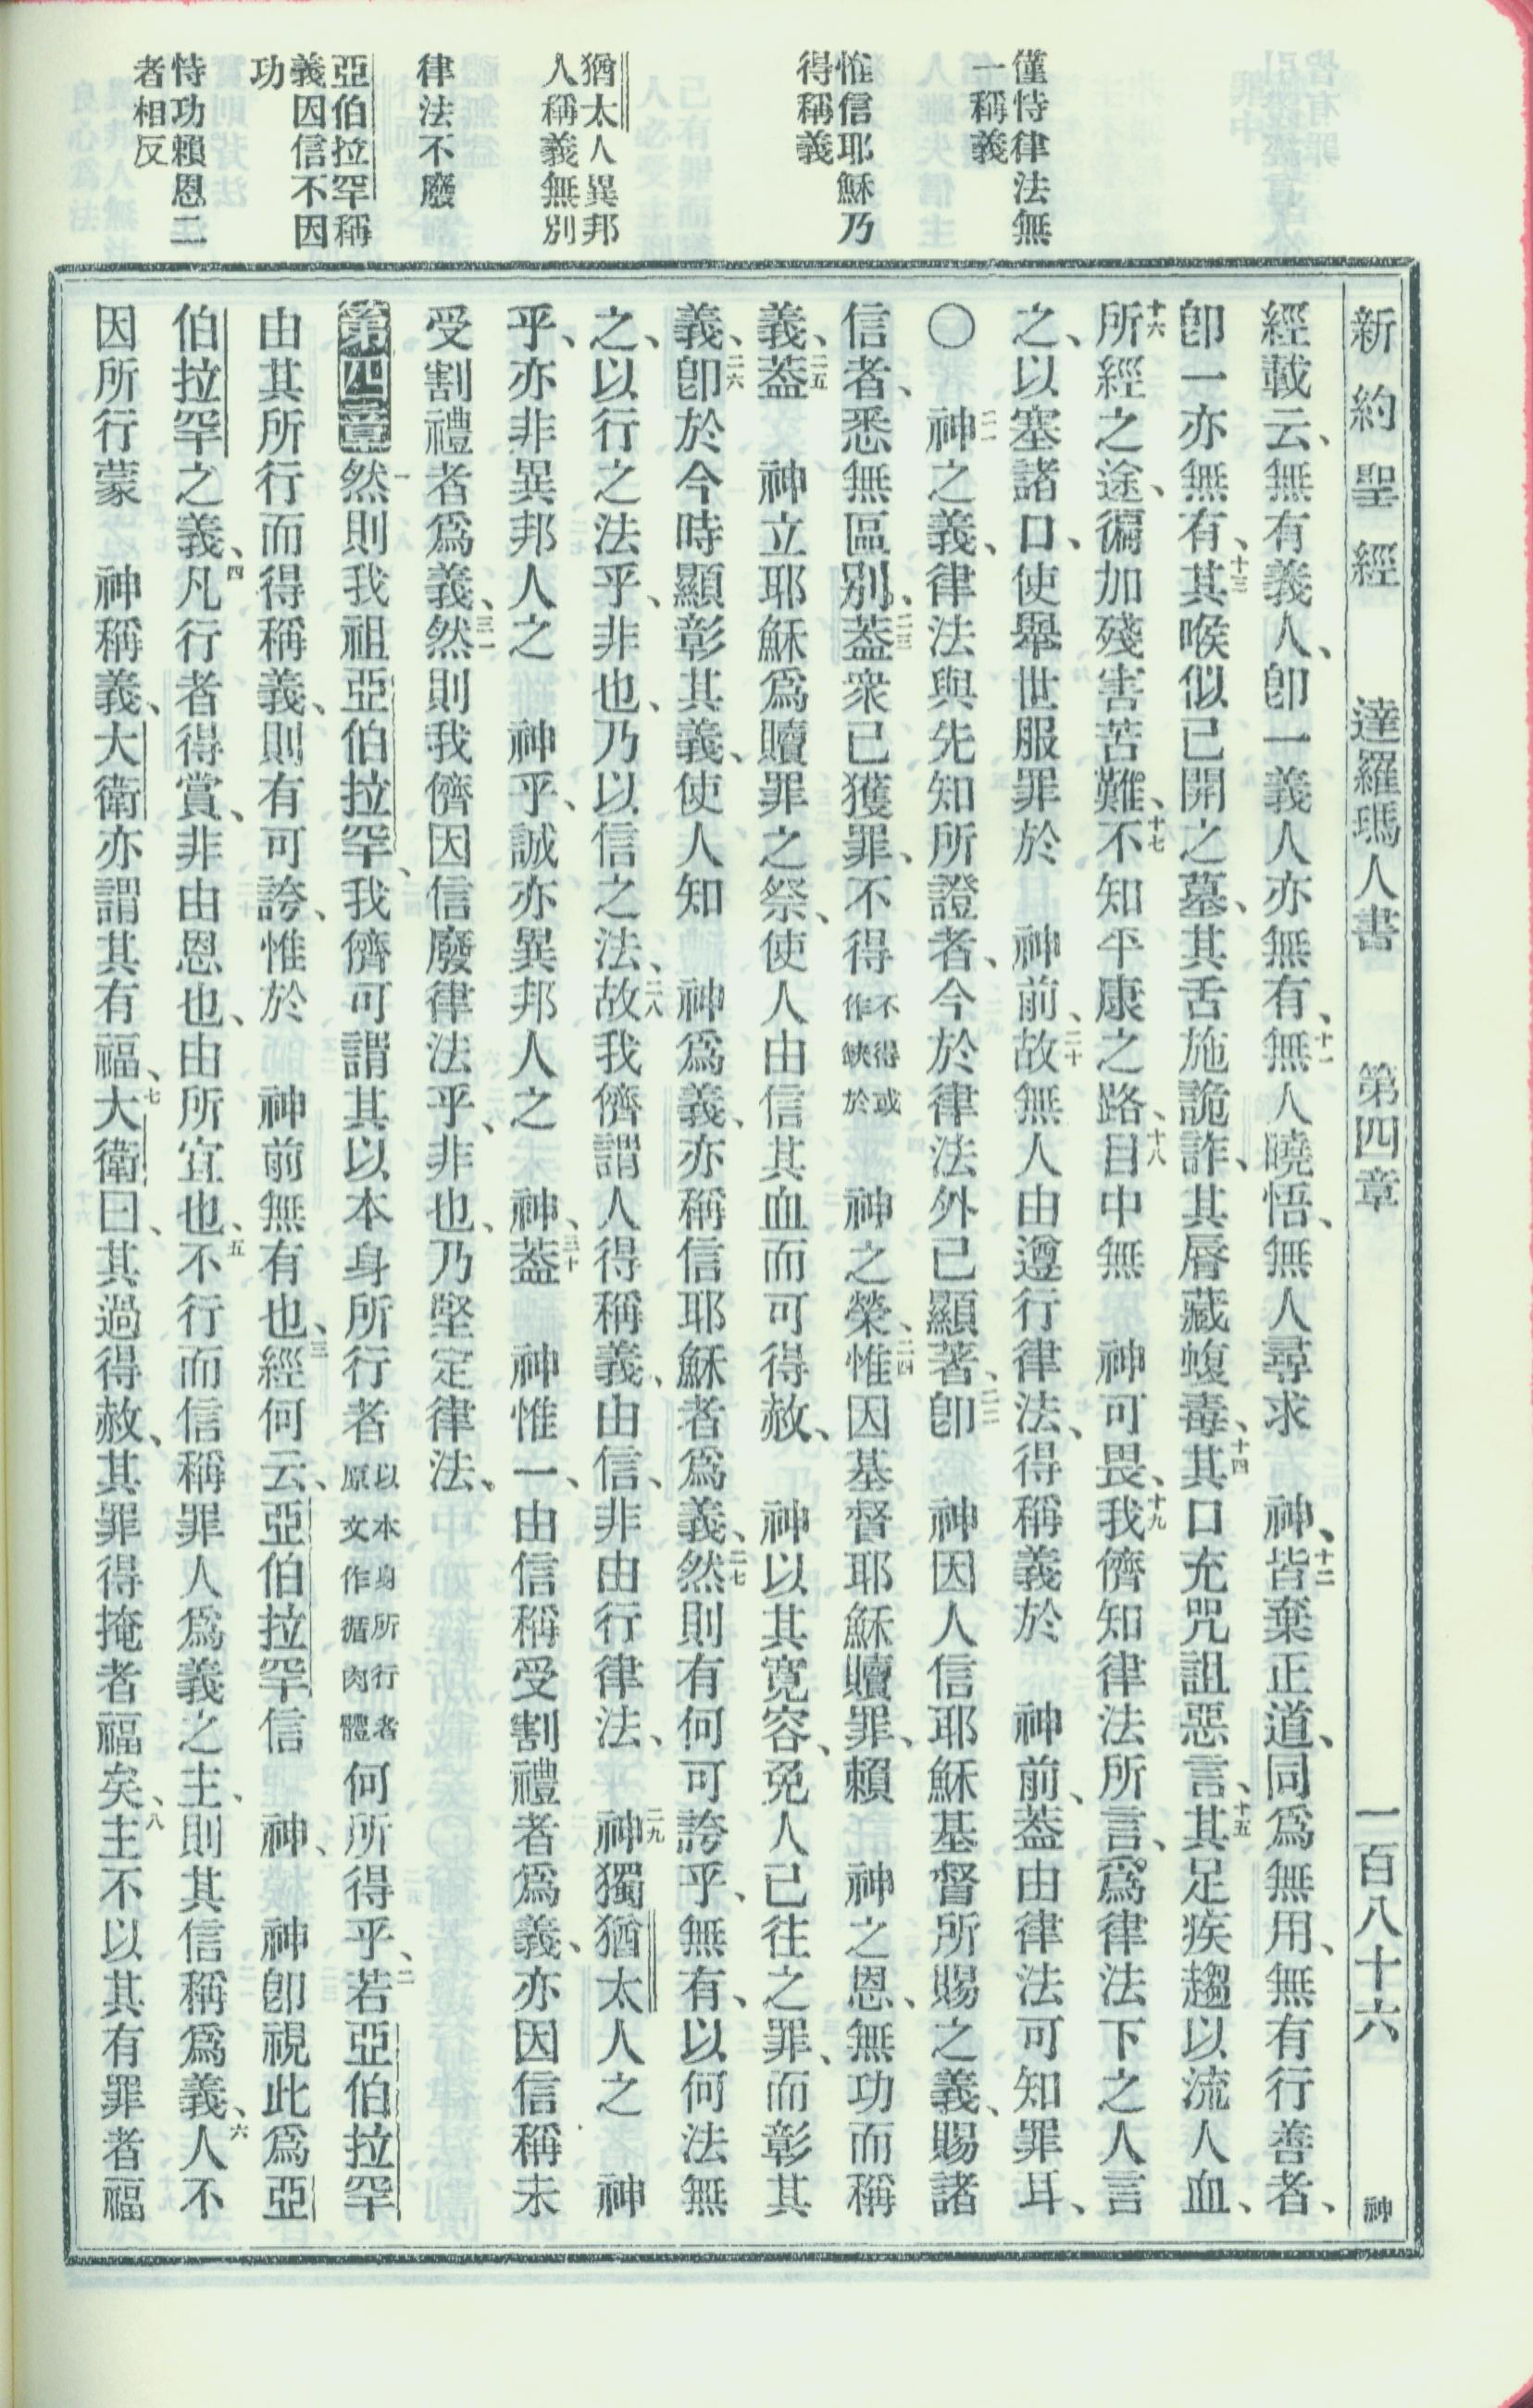 僅恃律法無
一稱義
惟信耶穌乃
得稱義
猶太人異邦
人稱義無別
律法不廢
亞伯拉罕稱
義因信不因
功
恃功賴恩二
者相反
新約聖經 達羅瑪人書 第四章 一百八十六 神
經載云、無有義人、卽一義人亦無有、十一無人曉悟、無人尋求 神、十二皆棄正道、同爲無用、無有行善者、
卽一亦無有、十三其喉似已開之墓、其舌施詭詐、其脣藏蝮毒、十四其口充咒詛惡言、十五其足疾趨以流人血、
十六所經之途、徧加殘害苦難、十七不知平康之路、十八目中無 神可畏、十九我儕知律法所言、爲律法下之人言
之、以塞諸口、使舉世服罪於 神前、二十故無人由遵行律法、得稱義於 神前、葢由律法可知罪耳、
〇 二一神之義、律法與先知所證者、今於律法外已顯著、二二卽 神因人信耶穌基督所賜之義、賜諸
信者、悉無區別、二三葢衆已獲罪、不得不得或作缺於 神之榮、二四惟因基督耶穌贖罪、賴 神之恩、無功而稱
義、二五葢 神立耶穌爲贖罪之祭、使人由信其血而可得赦、 神以其寬容、免人已往之罪、而彰其
義、二六卽於今時顯彰其義、使人知 神爲義、亦稱信耶穌者爲義、二七然則有何可誇乎、無有、以何法無
之、以行之法乎、非也、乃以信之法、二八故我儕謂人得稱義、由信、非由行律法、二九神獨猶太人之 神
乎、亦非異邦人之 神乎、誠亦異邦人之 神、三十葢 神惟一、由信稱受割禮者爲義、亦因信稱未
受割禮者爲義、三一然則我儕因信廢律法乎、非也、乃堅定律法、
第四章 一然則我祖亞伯拉罕、我儕可謂其以本身所行者以本身所行者原文作循肉體何所得乎、二若亞伯拉罕
由其所行而得稱義、則有可誇、惟於 神前無有也、三經何云、亞伯拉罕信 神、 神卽視此爲亞
伯拉罕之義、四凡行者得賞、非由恩也、由所宜也、五不行而信稱罪人爲義之主、則其信稱爲義、六人不
因所行蒙 神稱義、大衛亦謂其有福、七大衛曰、其過得赦、其罪得掩者福矣、八主不以其有罪者福